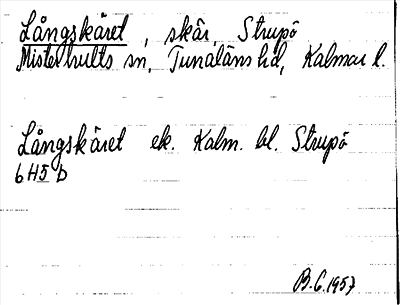 Långskäret, skär, Strupö
Misterhults sn, Tunaläns hd, Kalmar l.
Långskäret ek. Kalm. bl. Strupö
6H5b
B.G. 1957